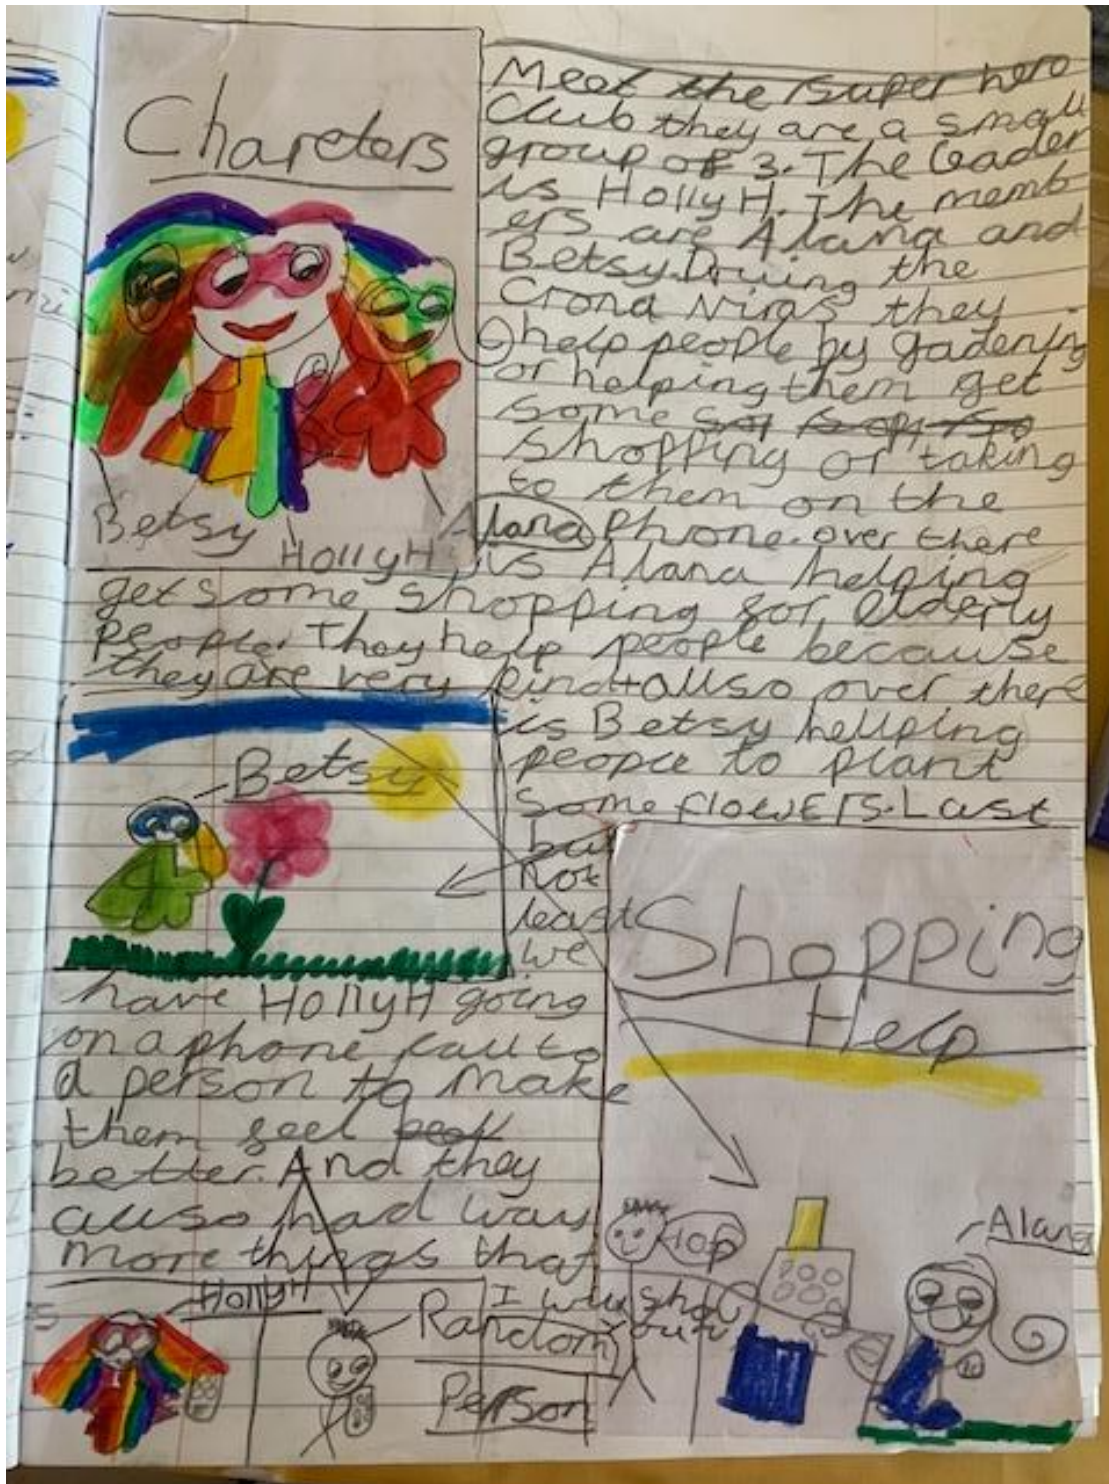 Chareters
Betsy
HollyH
Alana
Meet the super hero
Club they are a small
group of 3. The leader
is HollyH. The memb
ers are Alana and
Betsy. Druing the
Crona Niras they
help people by gadening
or helping them get
some
shopping or taking
to them on the
Phrone. over there
is Alana helping
get some shopping for elderly
people. They help people because
they are very kind + allso over there
is Betsy hellping
people to plant
some flowers. Last
but
not
least
we
Betsy
have HollyH going
on a phone call to
a person to make
them feel
better. And they
allso had way
more things that
I will show
HollyH
Random
Person
Shopping
Help
Alana